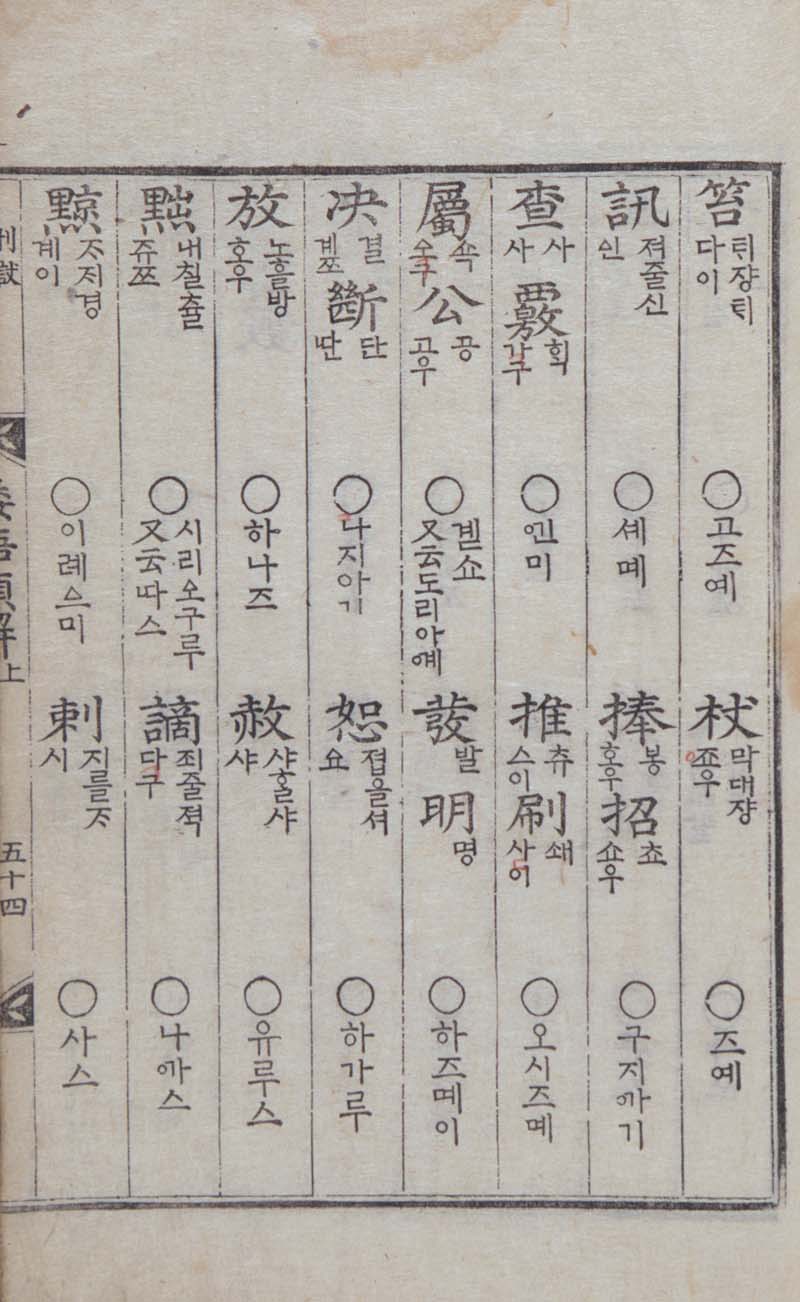 笞 틔쟝틔 다이 ○고즈예 杖 막대쟝 죠우 ○즈예
訊 져줄신 신 ○셰몌 捧 봉 호우 招 쵸 쇼우 ○구지까기
查 사 사 覈 획 각구 ○인미 推 츄 스이 刷 쇄 사이 ○오시즈몌
屬 쇽 쇼구 公 공 고우 ○곋쇼 又云도리아예 發 발 明 명 ○하즈몌이
决 결 계쯔 斷 단 딴 ○나지아기 恕 졉을셔 요 ○하가루
放 노흘방 호우 ○하나즈 赦 샤홀샤 샤 ○유루스
黜 내칠츌 쥬쯔 ○시리오구루 又云따스 謫 죄줄젹 다구 ○나까스
黥 ᄌᆞ지경 계이 ○이례스미 刺 지를ᄌᆞ 시 ○사스
刑獄 倭語類解上 五十四